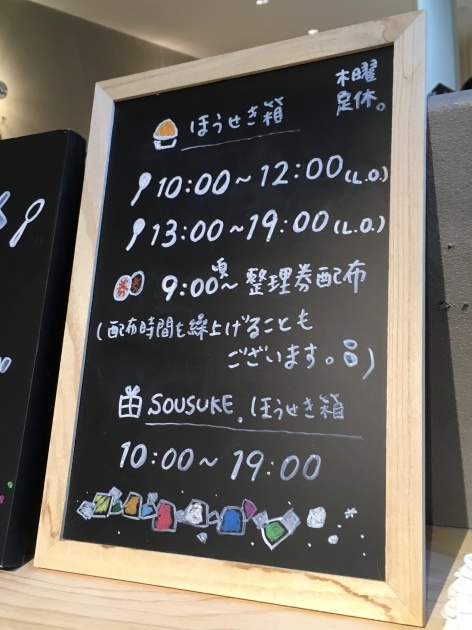 木曜
定休。
ほうせき箱
10:00~12:00(L.O.)
13:00~19:00(L.O.)
9:00頃~ 整理券配布
(配布時間を繰上げることも
ございます。)
SOUSUKE.ほうせき箱
10:00~19:00